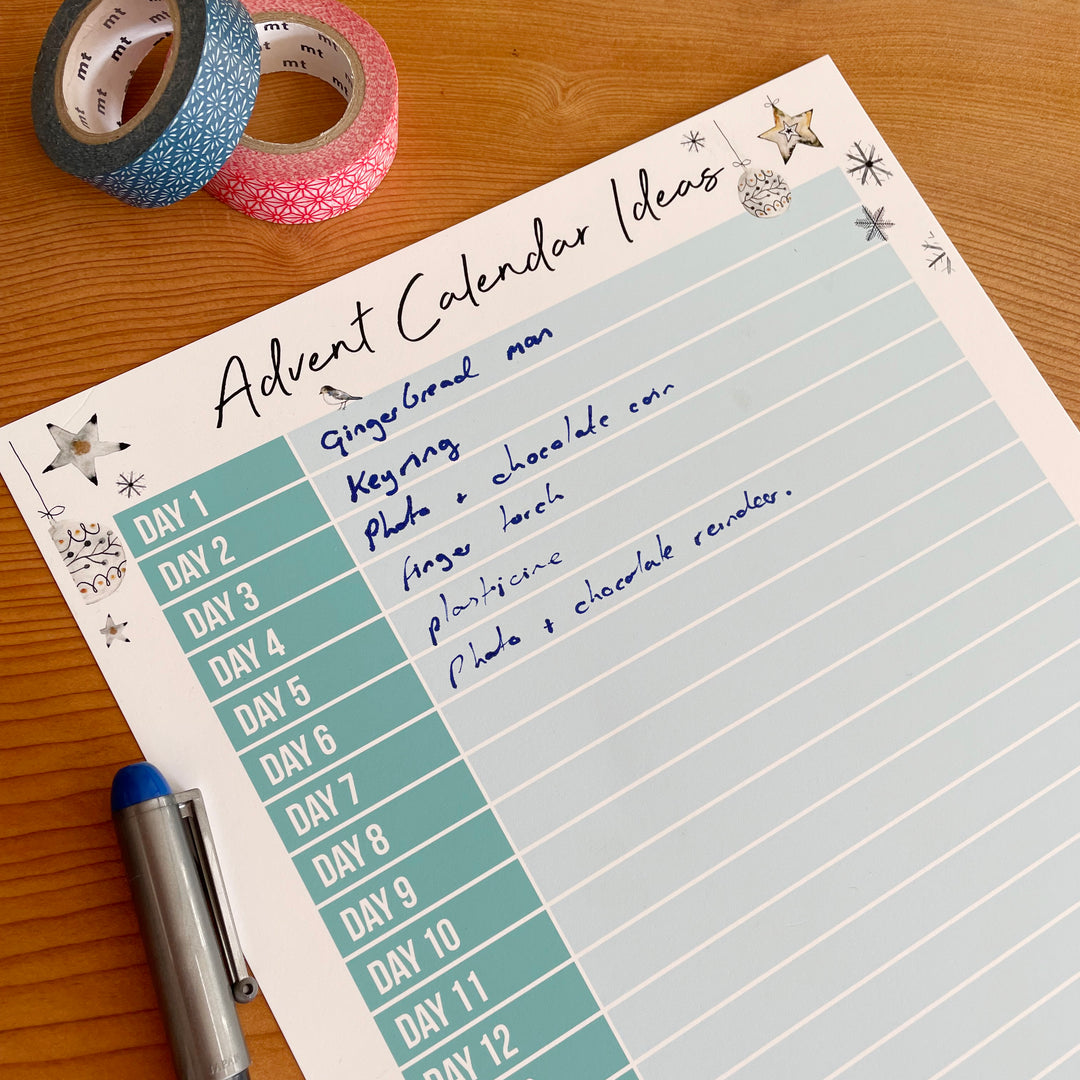 mt mt mt mt mt
mt mt mt
Advent Calendar Ideas
DAY 1 Gingerbread man
DAY 2 Keyring
DAY 3 Photo + chocolate coin
DAY 4 finger torch
DAY 5 plasticine
DAY 6 Photo + chocolate reindeer.
DAY 7
DAY 8
DAY 9
DAY 10
DAY 11
DAY 12
JAPAN